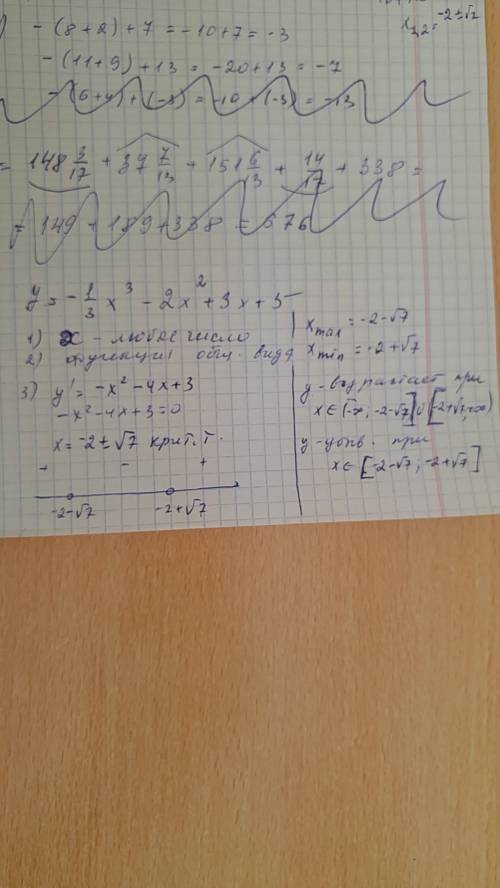 x₁,₂ = -2±√7
- (8+2) + 7 = -10+7 = -3
- (11+9) + 13 = -20+13 = -7
- (6+4) + (-3) = -10 + (-3) = -13
= 148 3/17 + 37 7/13 + 151 6/13 + 14/17 + 338 =
= 149 + 189 + 338 = 676
y = -1/3 x³ - 2x² + 3x + 5
1) x - любое число
2) функция общ. вида
3) y' = -x² - 4x + 3
-x² - 4x + 3 = 0
x = -2 ± √7 крит. т.
+ - +
-2-√7 -2+√7
x max = -2-√7
x min = -2+√7
y - возрастает при
x ∈ (-∞, -2-√7] ∪ [-2+√7, +∞)
y - убыв. при
x ∈ [-2-√7, -2+√7]